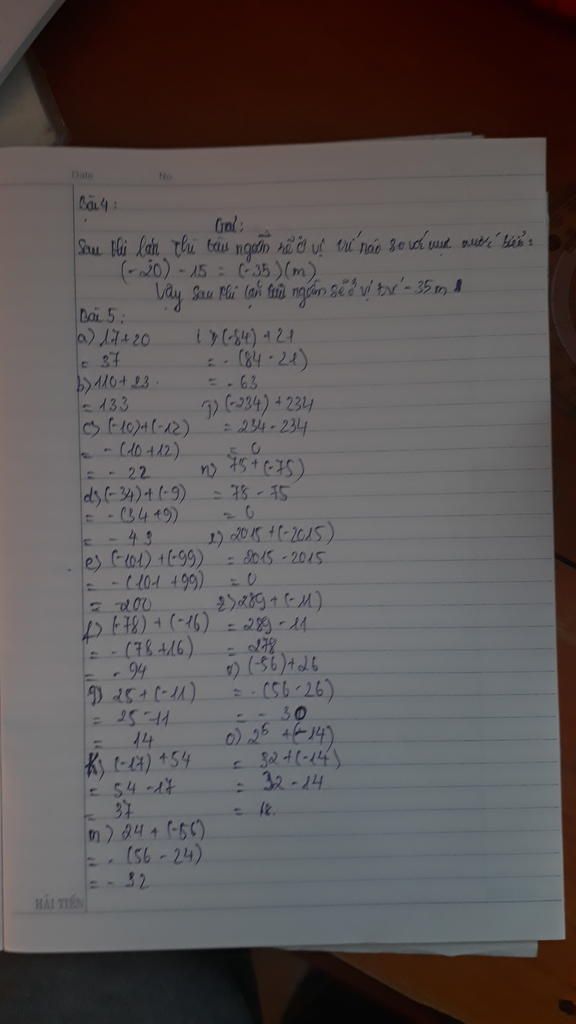 Date No
Bài 4:
Giải:
Sau khi lặn thì tàu ngầm sẽ ở vị trí nào so với mực nước biển:
(-20) - 15 = (-35) (m)
Vậy sau khi lặn tàu ngầm sẽ ở vị trí -35m
Bài 5:
a) 17+20
= 37
b) 110+23
= 133
c) (-10)+(-12)
= -(10+12)
= - 22
d) (-34)+(-9)
= -(34+9)
= - 43
e) (-101)+(-99)
= -(101+99)
= -200
f) (-78) + (-16)
= -(78+16)
= - 94
g) 25+(-11)
= 25-11
= 14
k) (-17)+54
= 54-17
= 37
m) 24+(-56)
= - (56-24)
= - 32
i) (-84)+21
= - (84-21)
= - 63
j) (-234)+234
= 234-234
= 0
n) 75+(-75)
= 78-75
= 0
2015+(-2015)
= 2015-2015
= 0
289+(-11)
= 289-11
= 278
(-56)+26
= -(56-26)
= - 30
o) 2⁵ +(-14)
= 32+(-14)
= 32-14
= 18.
HẢI TIẾN